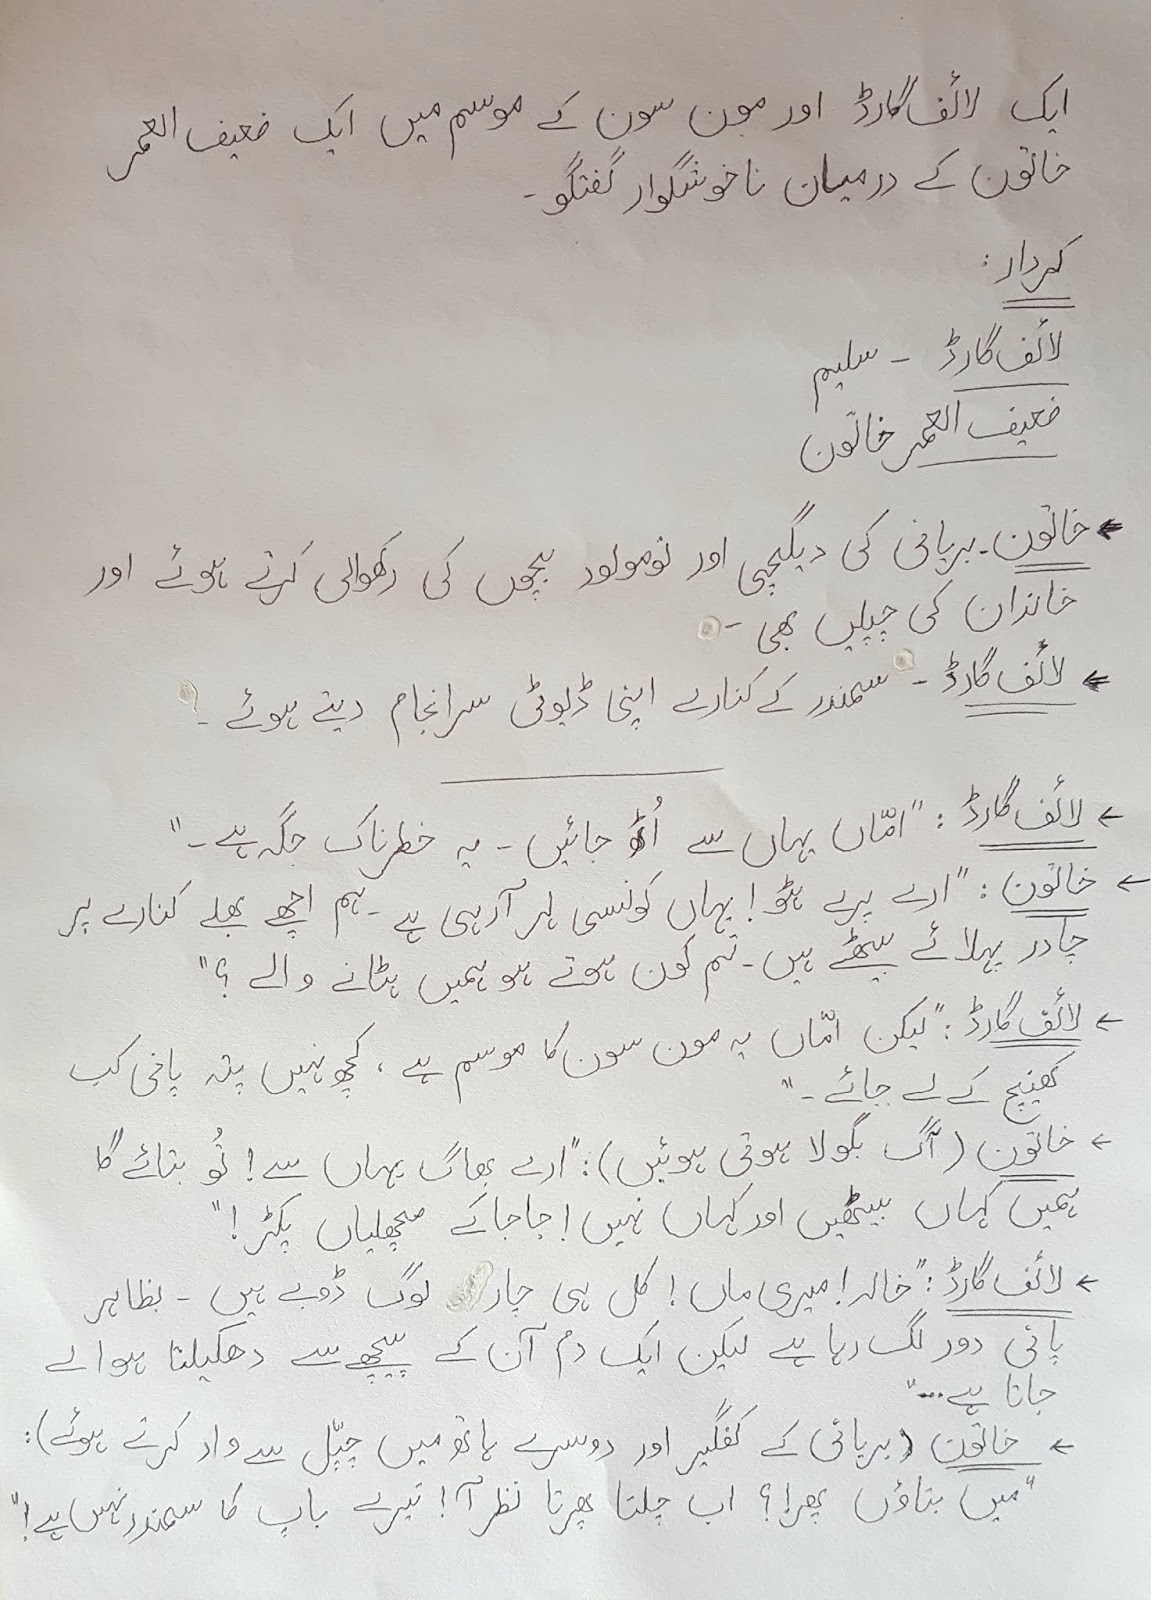 ایک لائف گارڈ اور مون سون کے موسم میں ایک ضعیف العمر
خاتون کے درمیان ناخوشگوار گفتگو۔
کردار:
لائف گارڈ - سلیم
ضعیف العمر خاتون
← خاتون۔ بریانی کی دیگچی اور نومولود بچوں کی رکھوالی کرتے ہوئے اور
خاندان کی چپلیں بھی -
← لائف گارڈ - سمندر کے کنارے اپنی ڈیوٹی سرانجام دیتے ہوئے -
← لائف گارڈ: "امّاں یہاں سے اُٹھ جائیں - یہ خطرناک جگہ ہے -"
← خاتون: "ارے پرے ہٹو! یہاں کونسی لہر آرہی ہے - ہم اچھے بھلے کنارے پر
چادر پہلائے بیٹھے ہیں - تم کون ہوتے ہو ہمیں ہٹانے والے؟"
← لائف گارڈ: "لیکن امّاں یہ مون سون کا موسم ہے، کچھ نہیں پتہ پانی کب
کھینچ کے لے جائے -"
← خاتون (آگ بگولا ہوتی ہوئیں): "ارے بھاگ یہاں سے! تُو بتائے گا
ہمیں کہاں بیٹھیں اور کہاں نہیں! جا جا کے مچھلیاں پکڑ!"
← لائف گارڈ: "خالہ! میری ماں! کل ہی چار لوگ ڈوبے ہیں - بظاہر
پانی دور لگ رہا ہے لیکن ایک دم آن کے پیچھے سے دھکیلتا ہوا لے
جاتا ہے..."
← خاتون (بریانی کے کفگیر اور دوسرے ہاتھ میں چپّل سے وار کرتے ہوئے):
"میں بتاؤں پھر!؟ اب چلتا پھرتا نظر آ! تیرے باپ کا سمندر نہیں ہے!"